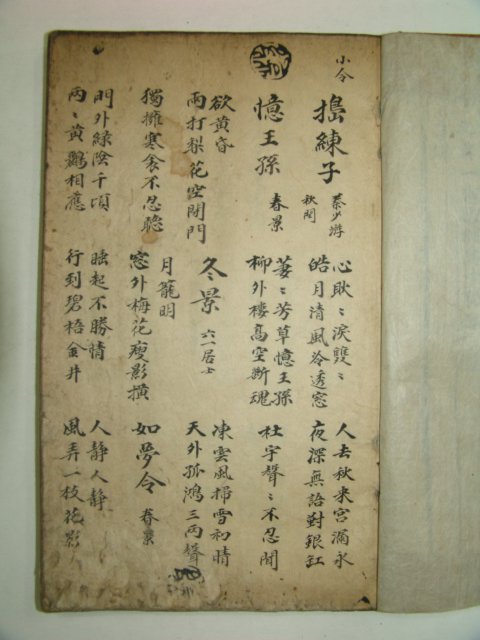 小令
搗練子
秦少游
秋閨
心耿〻淚雙〻
皓月清風冷透窓
人去秋来宮漏永
夜深無語對銀釭
憶王孫
春景
萋〻芳草憶王孫
柳外樓高空斷魂
杜宇聲〻不忍聞
欲黄昏
雨打梨花空閉門
冬景
六一居士
凍雲風掃雪初晴
天外孤鴻三両聲
獨擁寒衾不忍聽
月籠明
窓外梅花瘦影撗
如夢令
春景
門外綠陰千頃
兩〻黄鸝相應
睡起不勝情
行到碧梧金井
人静人静
風弄一枝花影